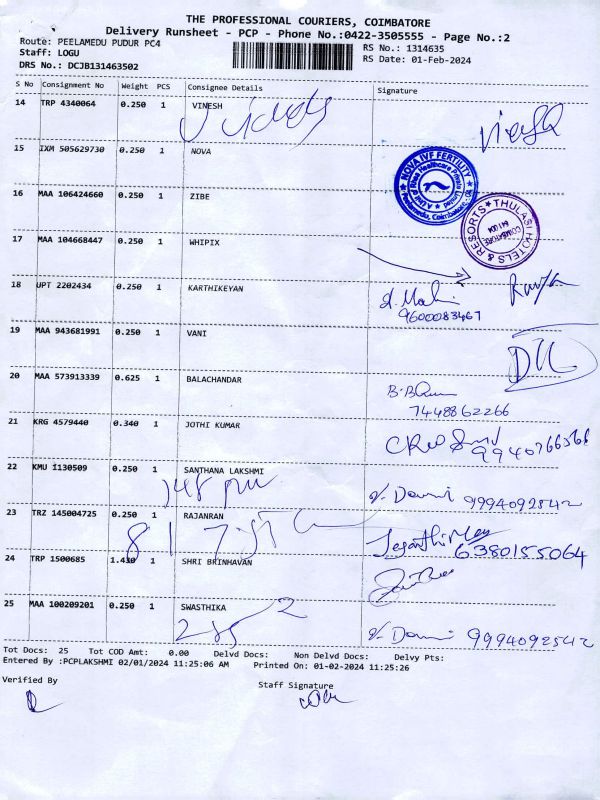 THE PROFESSIONAL COURIERS, COIMBATORE
Delivery Runsheet - PCP - Phone No.:0422-3505555 - Page No.:2
Route: PEELAMEDU PUDUR PC4
RS No.: 1314635
Staff: LOGU
RS Date: 01-Feb-2024
DRS No.: DCJB131463502
S No Consignment No Weight PCS Consignee Details Signature
14 TRP 4340064 0.250 1 VINESH
15 IXM 505629730 0.250 1 NOVA
NOVA IVF FERTILITY
Peelamedu, Coimbatore
16 MAA 106424660 0.250 1 ZIBE
THULASI HOTELS & RESORTS
COIMBATORE
641 004
17 MAA 104668447 0.250 1 WHIPIX
18 UPT 2202434 0.250 1 KARTHIKEYAN
9600083467
19 MAA 943681991 0.250 1 VANI
20 MAA 573913339 0.625 1 BALACHANDAR
7448862266
21 KRG 4579440 0.340 1 JOTHI KUMAR
9940766566
22 KMU 1130509 0.250 1 SANTHANA LAKSHMI
148
9994092542
23 TRZ 145004725 0.250 1 RAJANRAN
6380155064
24 TRP 1500685 1.430 1 SHRI BRINHAVAN
25 MAA 100209201 0.250 1 SWASTHIKA
9994092542
Tot Docs: 25 Tot COD Amt: 0.00 Delvd Docs: Non Delvd Docs: Delvy Pts:
Entered By :PCPLAKSHMI 02/01/2024 11:25:06 AM Printed On: 01-02-2024 11:25:26
Verified By
Staff Signature